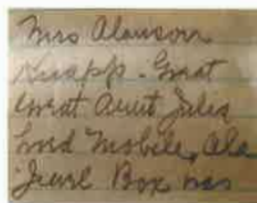 Mrs Alanson
Knapp. Great
Great Aunt Jules
lived Mobile, Ala
Jewel Box was